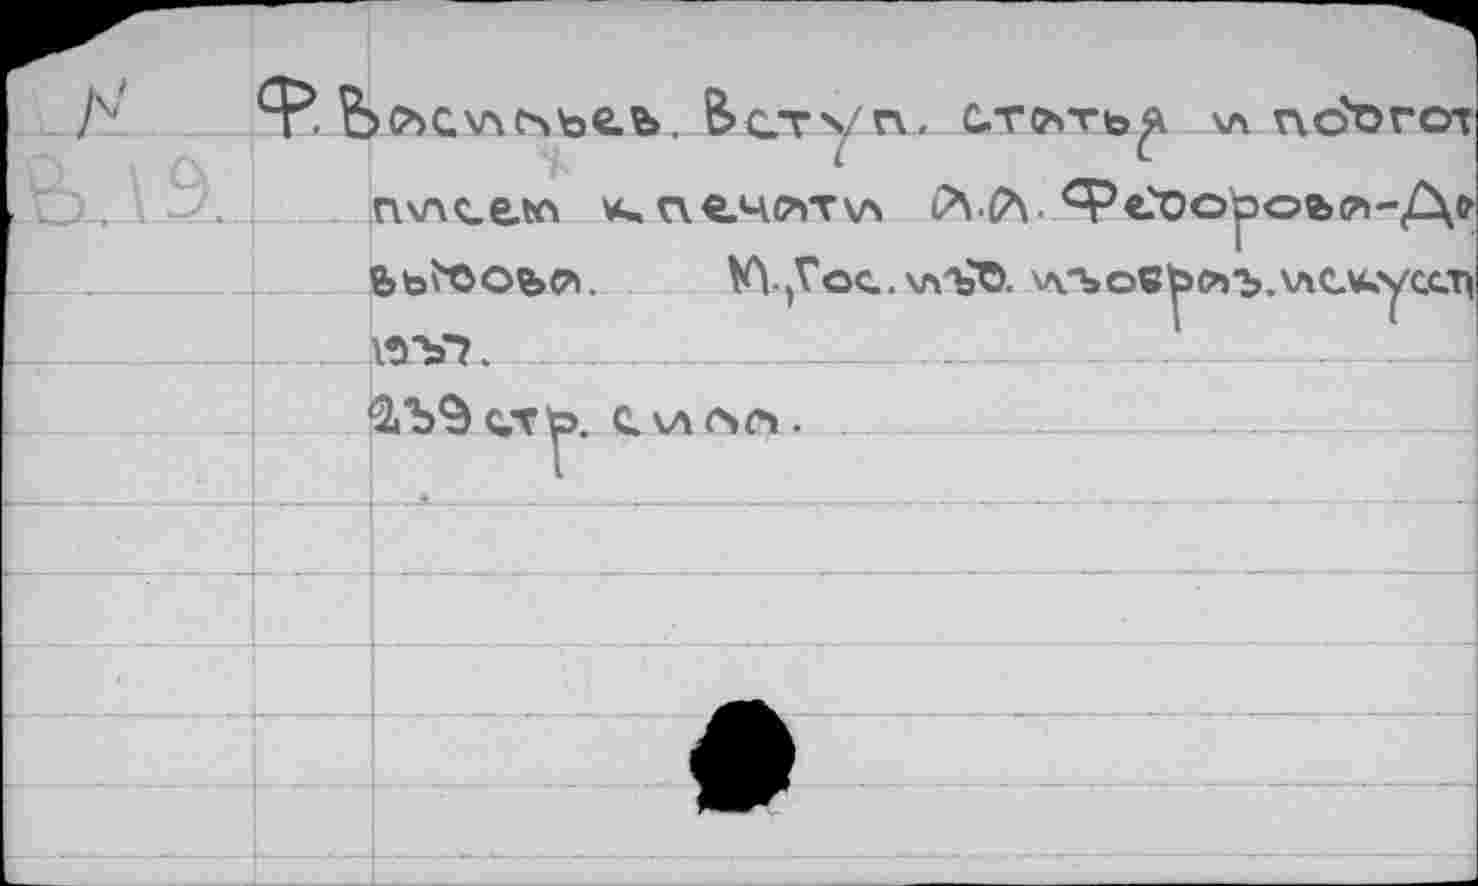 N Ф. Васильев. Вступ. статья и подгот
В.19. писем к печати А.А. Федорова-Да
выдова. М., Гос. изд. изобраз. искусст
1937.
239 стр. с илл.